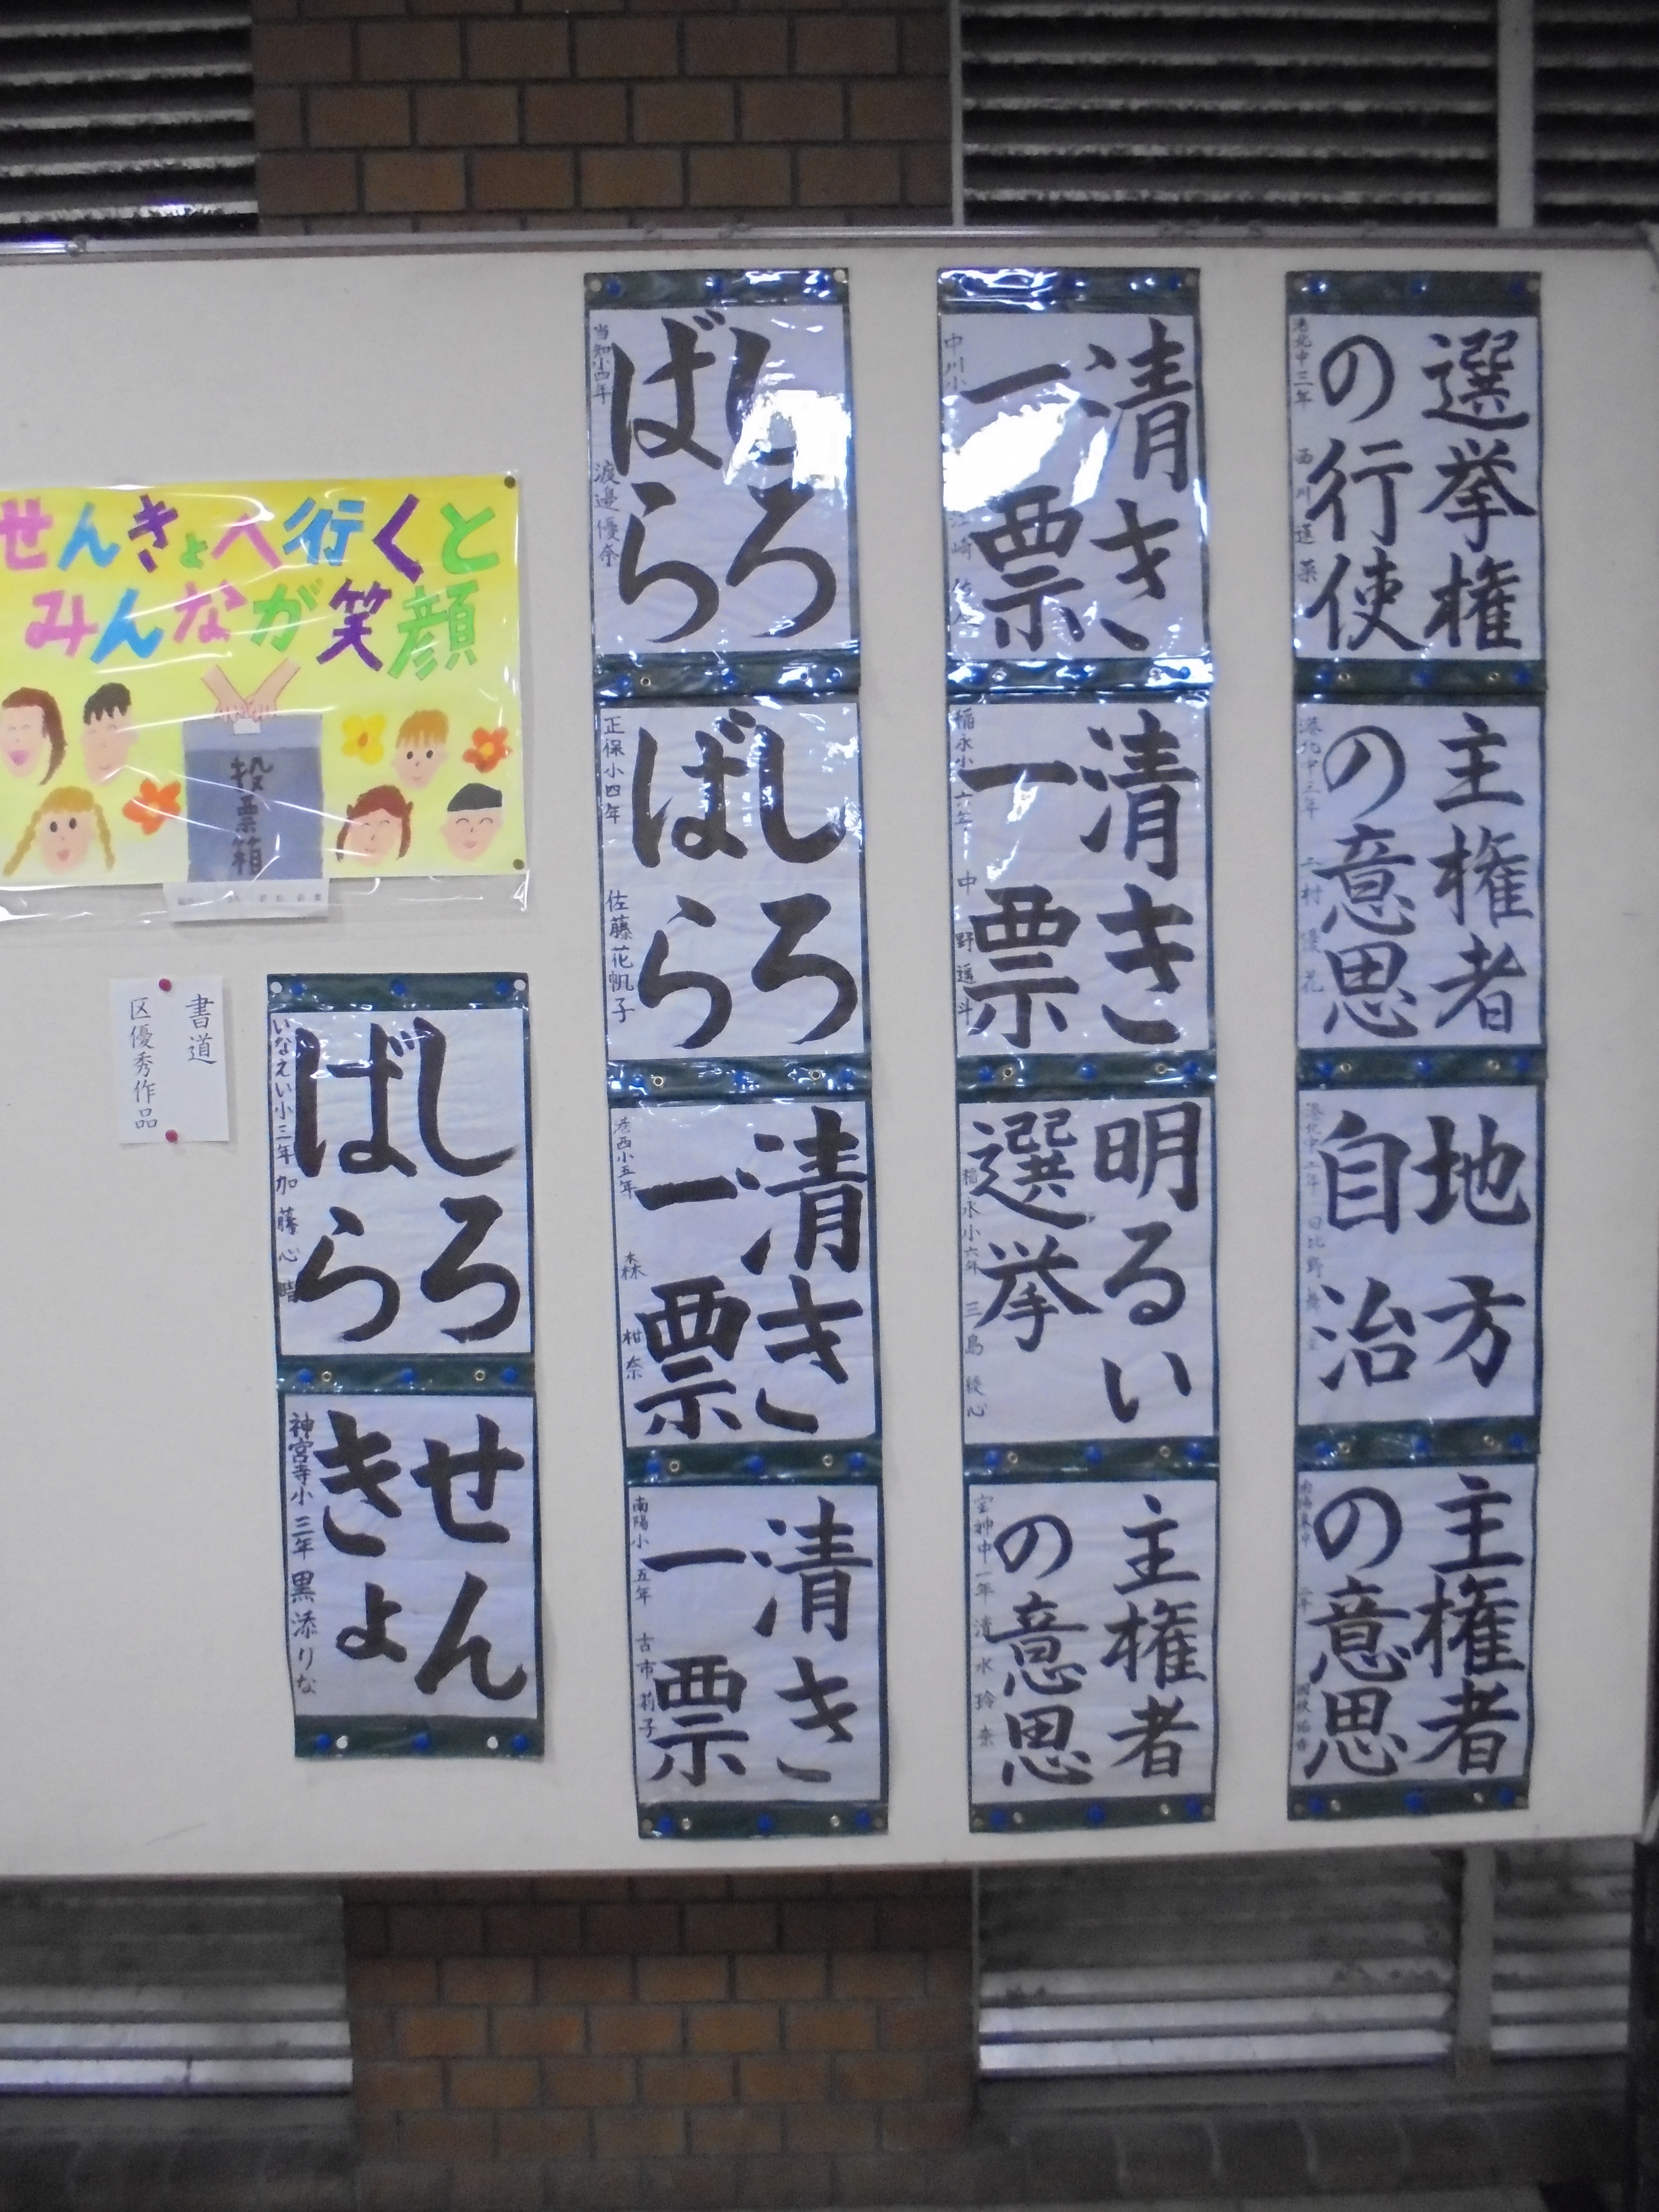 選挙権
の行使
主権者
の意思
地方
自治
主権者
の意思
清き
一票
中川小
清き
一票
稲永小六年 中野遥斗
明るい
選挙
稲永小六年 三島綾心
主権者
の意思
宝神中一年 清水玲奈
しろ
ばら
当知小四年 渡邉優奈
しろ
ばら
正保小四年 佐藤花帆子
清き
一票
港西小五年 森柑奈
清き
一票
南陽小五年 古市莉子
せんきょへ行くと
みんなが笑顔
投票箱
書道
区優秀作品
しろ
ばら
いなえい小三年 加藤心晴
せん
きょ
神宮寺小三年 黒添りな